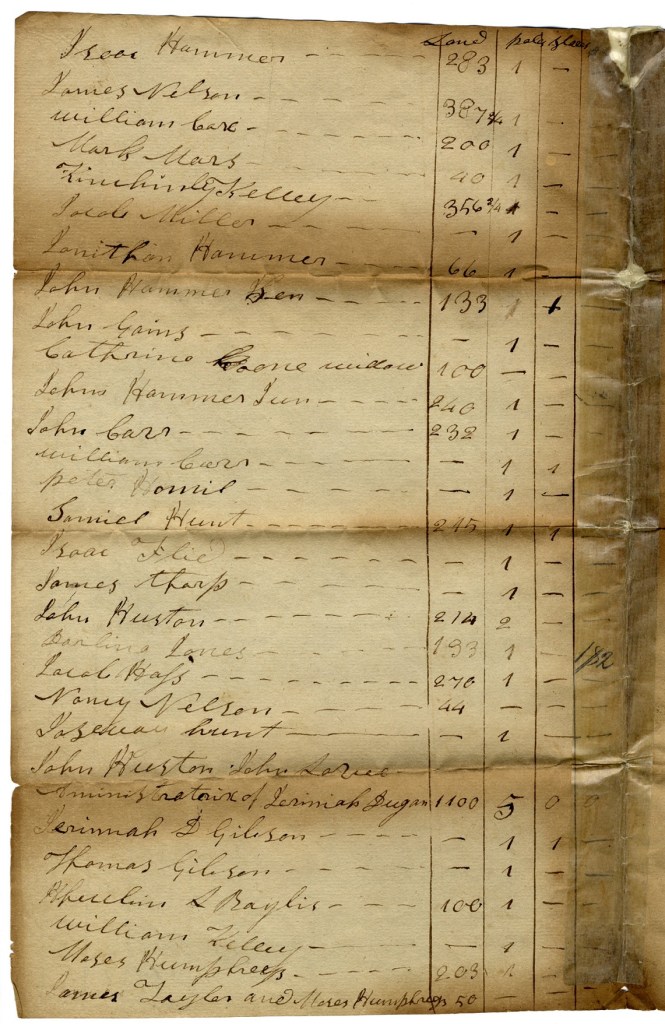 Land pole
Isaac Hammer - - - - 283 1 -
James Nelson - - - - 387 3/4 1 -
William Carr - - - - 200 1 -
Mark Mars - - - - 40 1 -
Kelley - - 356 3/4 1 -
Jacob Miller - - - - 1 -
Jonithan Hammer - - - 66 1 -
John Hammer Sen - - - 133 1 1
John Gains - - - - - 1 -
Cathrine Boone widow 100 - -
John Hammer Jun - - - 240 1 -
John Carr - - - - 232 1 -
William Carr - - - - - 1 1
Peter - - - - - 1 -
Samiel Hunt - - - - 215 1 1
Isaac - - - - - 1 -
James Tharp - - - - - 1 -
John Huston - - - - 214 2 -
Jones - - - - 133 1 - 182
Jacob Hass - - - - 270 1 -
Nancy Nelson - - - - 44 - -
Hunt - - 1 -
John Huston John
Aministratorix of Jerimiah Dugan 1100 5 0 0
Jerimiah D Gibson - - - - 1 1
Thomas Gibson - - - - - 1 -
L Baylis - - - 100 1 -
William Kelley - 1 -
Moses Humphreys - - - 203 -
James Taylor and Moses Humphreys 50 - -